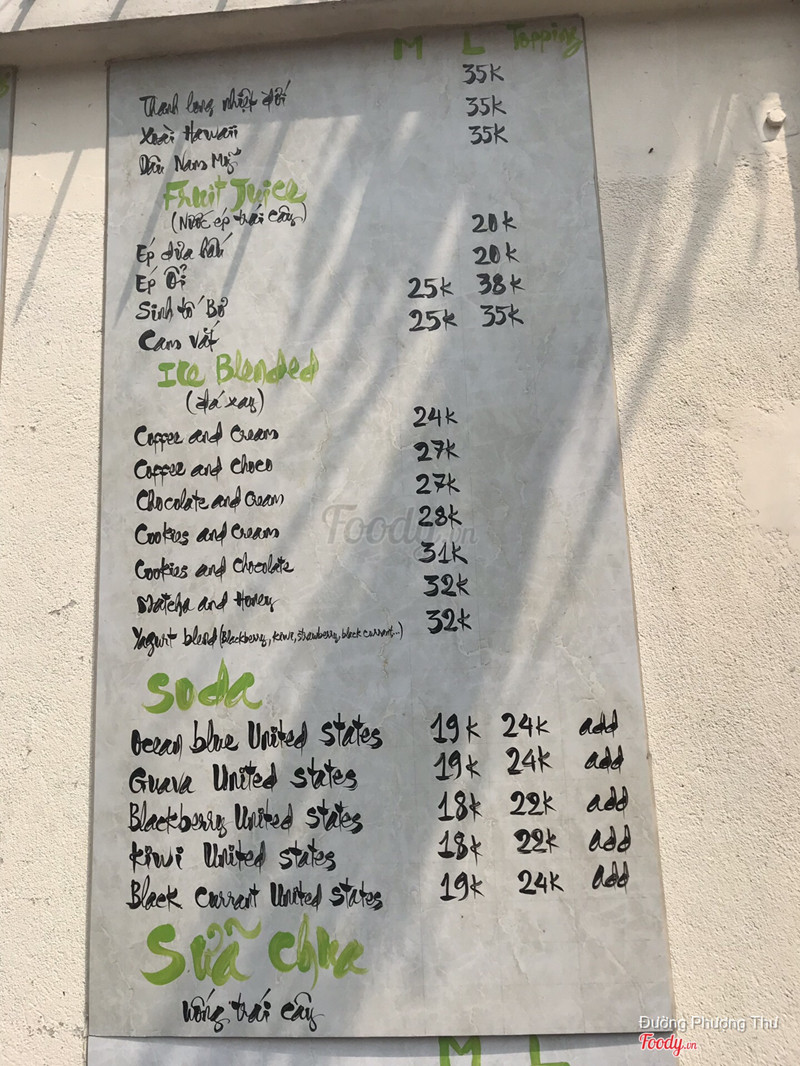 M L Topping
Thanh long nhiệt đới 35k
Xoài Hawaii 35k
Dâu Nam Mỹ 35k
Fruit Juice
(Nước ép trái cây)
Ép dưa hấu 20k
Ép ổi 20k
Sinh tố Bơ 25k 38k
Cam vắt 25k 35k
Ice Blended
(đá xay)
Coffee and Cream 24k
Coffee and Choco 27k
Chocolate and Cream 27k
Cookies and Cream 28k
Cookies and Chocolate 31k
Matcha and Honey 32k
Yagurt blend (Blackberry, kiwi, strawberry, black currant...) 32k
Soda
Ocean blue United States 19k 24k add
Guava United States 19k 24k add
Blackberry United States 18k 22k add
Kiwi United States 18k 22k add
Black Currant United States 19k 24k add
Sữa chua
uống trái cây
M L
Foody.vn
Đường Phượng Thư
Foody.vn